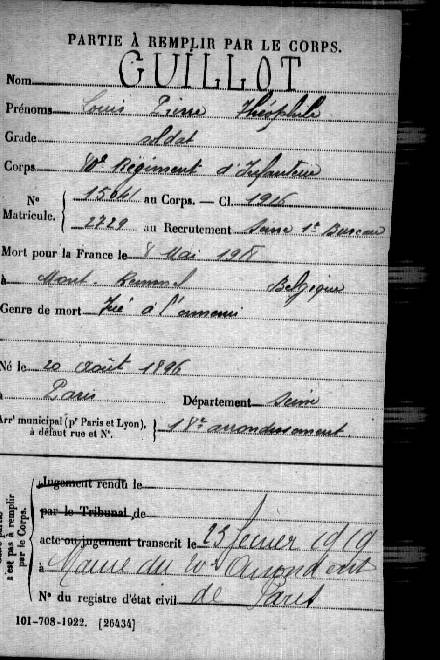 PARTIE À REMPLIR PAR LE CORPS.
Nom GUILLOT
Prénoms Louis Pierre Théophile
Grade soldat
Corps Régiment d'Infanterie
N° 15061 au Corps. — Cl. 1916
Matricule. 2229 au Recrutement Seine 1er Bureau
Mort pour la France le 8 Mai 1918
à Mont. Kemmel Belgique
Genre de mort Tué à l'ennemi
Né le 20 Août 1896
à Paris Département Seine
Arrt municipal (pr Paris et Lyon), à défaut rue et N°. 18e arrondissement.
Jugement rendu le
par le Tribunal de
acte ou jugement transcrit le 23 février 1919
à Mairie du arrond ent
N° du registre d'état civil de Paris
est pas à remplir
par le Corps.
101-708-1922. [26434]